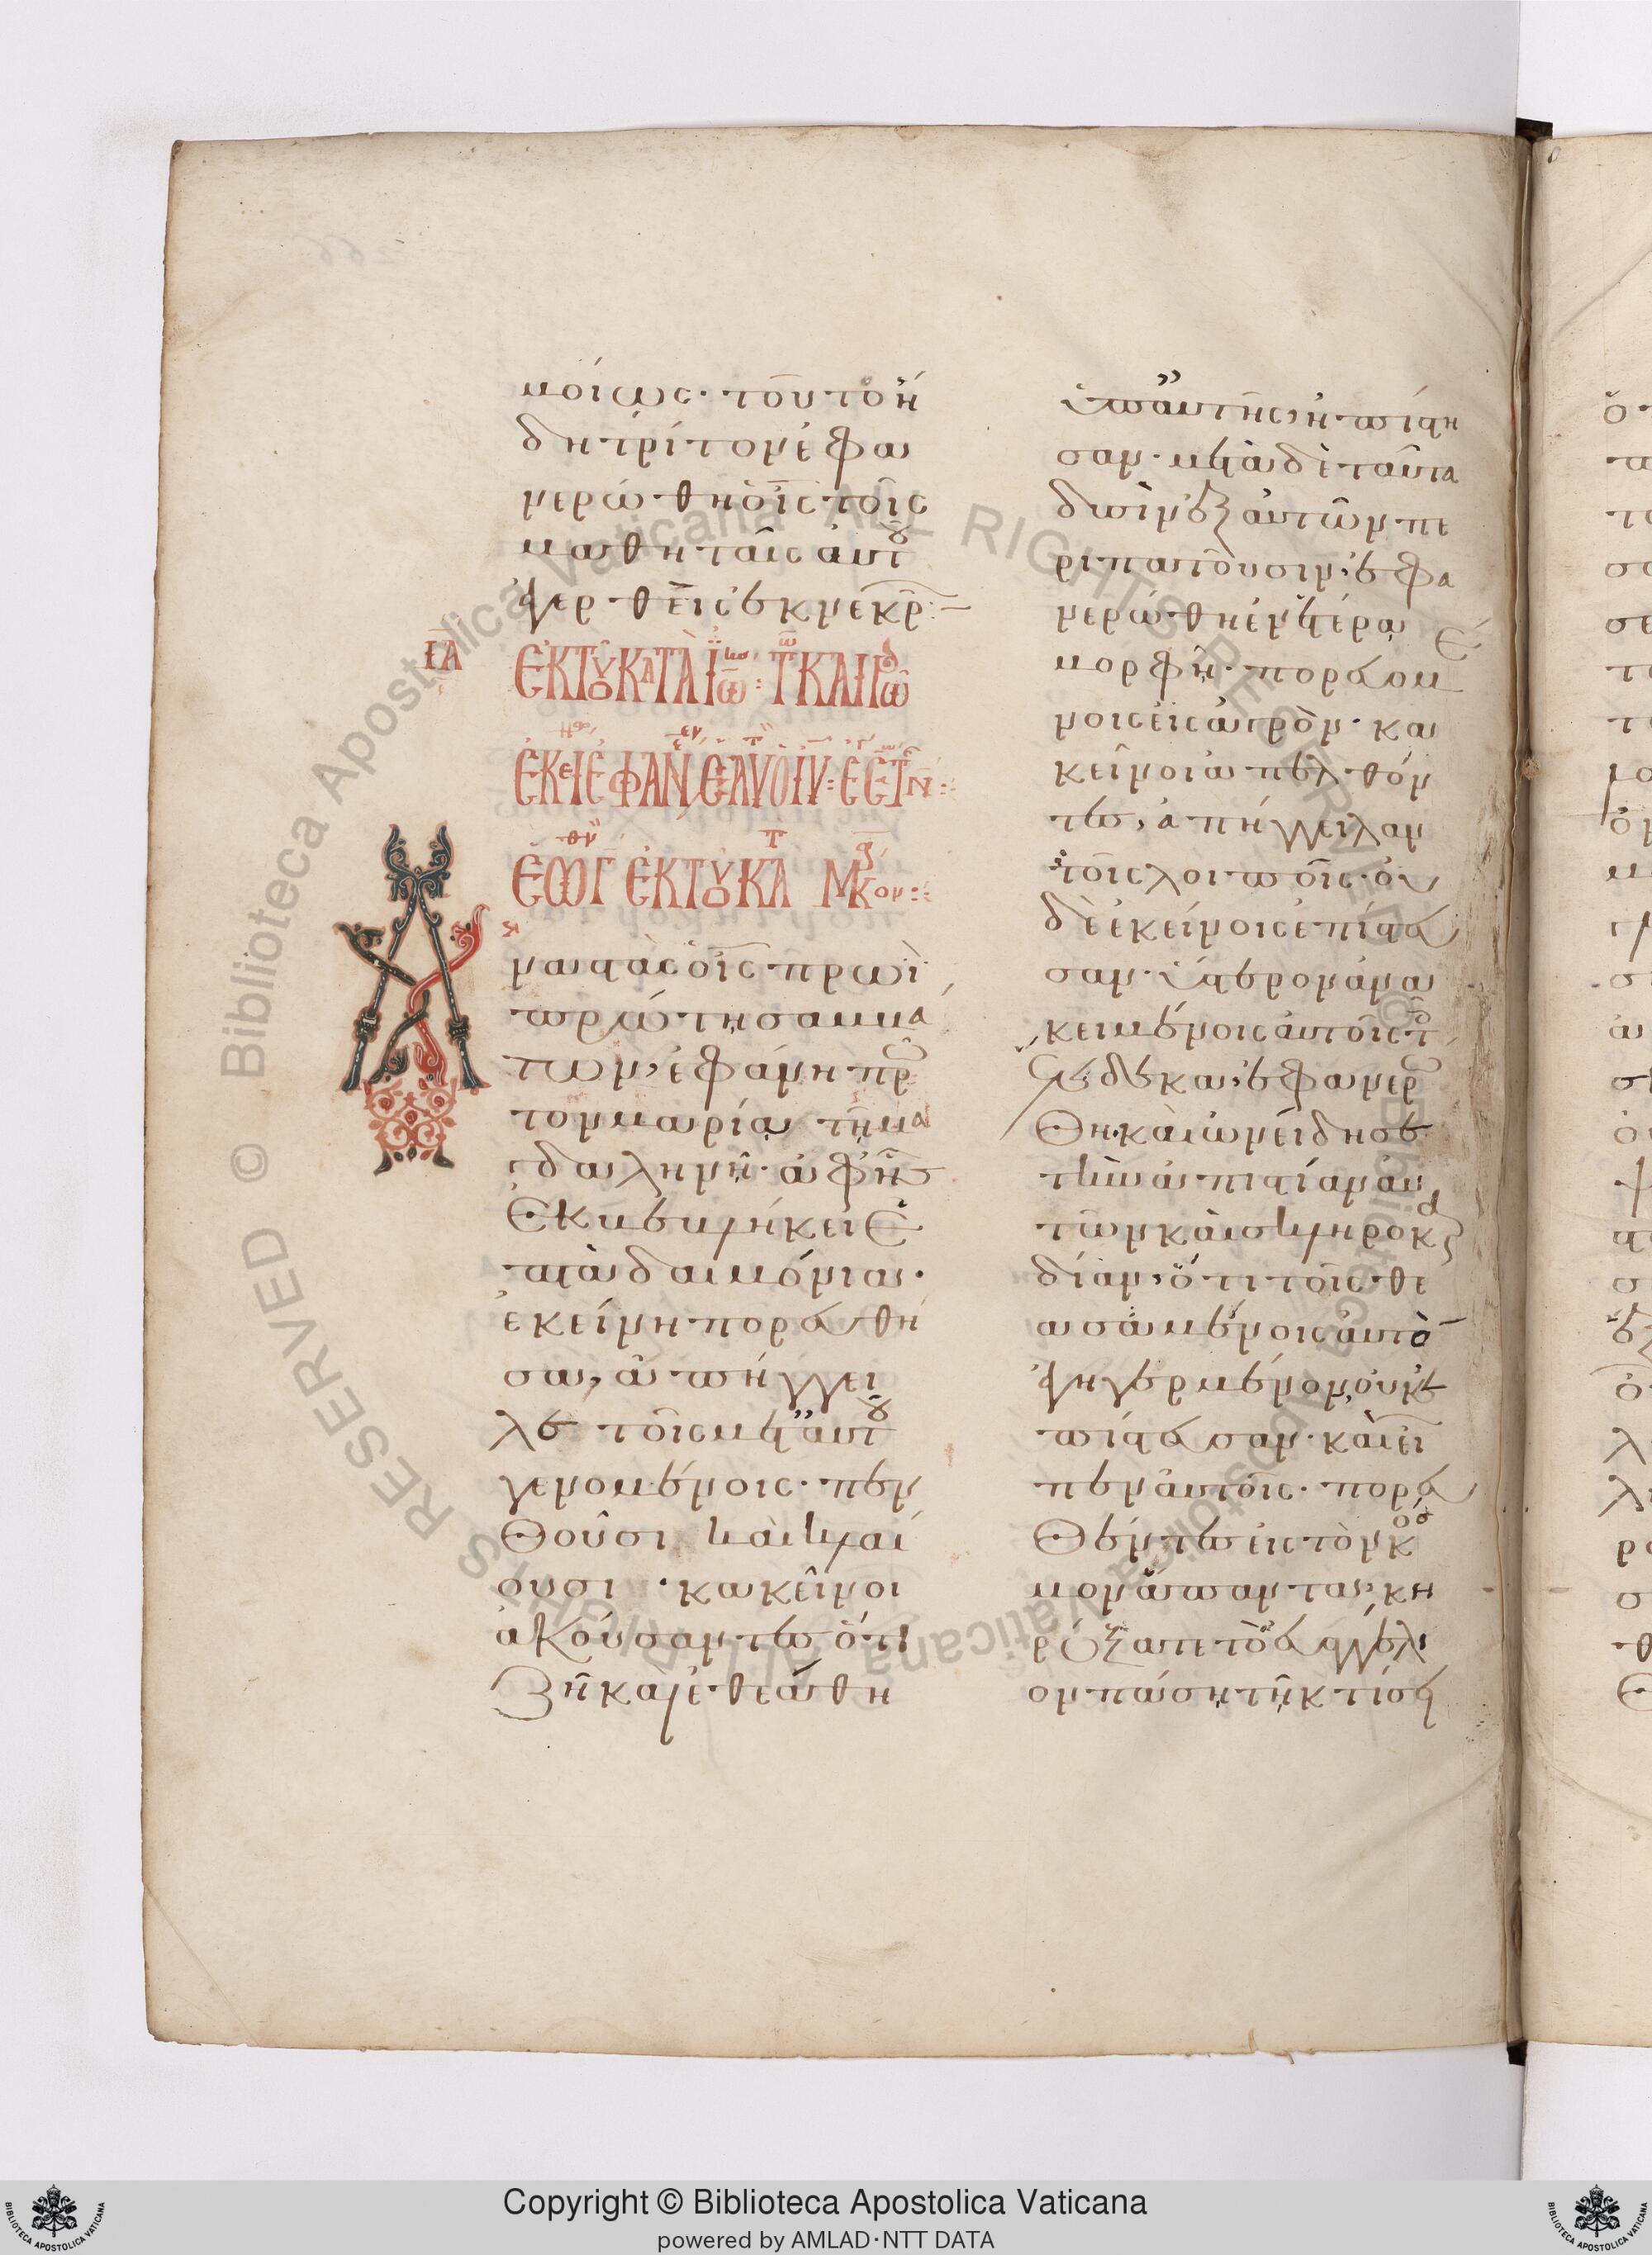 μοίως· τοῦτο ἤ
δη τρίτον ἐφα
νερώθη ὁ ΙΣ τοῖς
μαθηταῖς αὐτοῦ
ἐγερθεὶς ἐκ νεκρ
ΕΚ ΤΟΥ ΚΑΤΑ ΙΩ
ναστὰς ὁ ΙΣ πρωῒ
πρώτῃ σαββά
των, ἐφάνη πρῶ
τον μαρίᾳ τῇ μα
γδαληνῇ· ἀφ' ἧς
ἐκβεβλήκει ἑ
πτὰ δαιμόνια·
ἐκείνη πορευθεῖ
σα, ἀπήγγει
λε τοῖς μετ' αὐτοῦ
γενομένοις· πεν
θοῦσι καὶ κλαί
ουσι· κακεῖνοι
ἀκούσαντες ὅτι
ζῇ καὶ ἐθεάθη
ὑπ' αὐτῆς, ἠπίστη
σαν· μετὰ δὲ ταῦτα
δυσὶν ἐξ αὐτῶν πε
ριπατοῦσιν, ἐφα
νερώθη ἐν ἑτέρᾳ
μορφῇ· πορευομέ
νοις εἰς ἀγρόν· κα
κεῖνοι ἀπελθόν
τες, ἀπήγγειλαν
τοῖς λοιποῖς· οὐ
δὲ ἐκείνοις ἐπίστευ
σαν· ὕστερον ἀνα
κειμένοις αὐτοῖς τοῖς
ἕνδεκα, ἐφανερώ
θη· καὶ ὠνείδησε
τὴν ἀπιστίαν αὐ
τῶν καὶ σκληροκαρ
δίαν, ὅτι τοῖς θε
ασαμένοις αὐτὸν
ἐγηγερμένον, οὐκ ἐ
πίστευσαν· καὶ εἶ
πεν αὐτοῖς· πορευ
θέντες εἰς τὸν κό
σμον ἅπαντα, κη
ρύξατε τὸ εὐαγγέλι
ον πάσῃ τῇ κτίσει
Copyright © Biblioteca Apostolica Vaticana
powered by AMLAD·NTT DATA